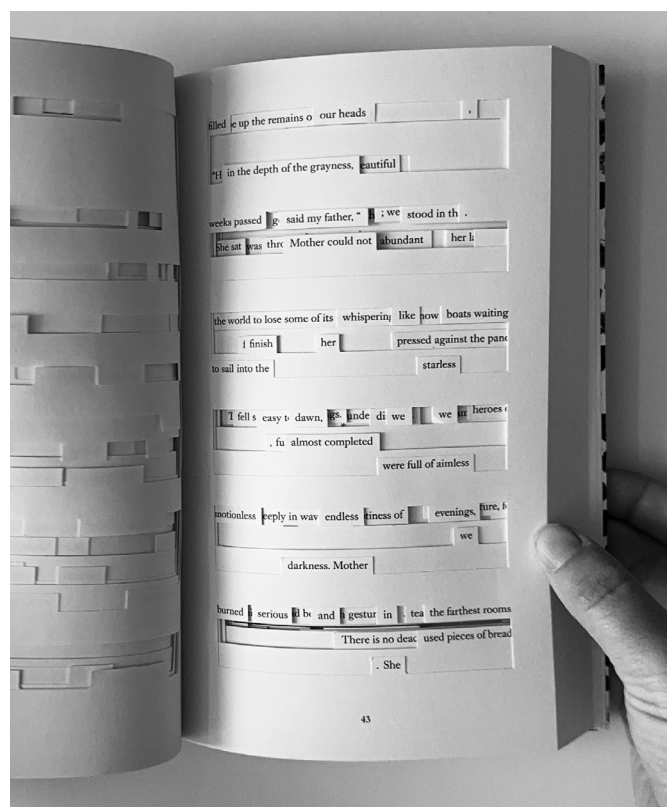 filled e up the remains o our heads ,
“H in the depth of the grayness, eautiful
weeks passed g said my father, “ h ; we stood in th .
She sat was thro Mother could not abundant her li
the world to lose some of its whispering like now boats waiting
I finish her pressed against the pane
to sail into the starless
I fell s easy t dawn, igs. unde di we we in heroes
, fu almost completed
were full of aimless
motionless eeply in wav endless tiness of evenings, ture, f
we
darkness. Mother
burned serious d be and h gestur in . tea the farthest rooms
There is no dead used pieces of bread
. She
43